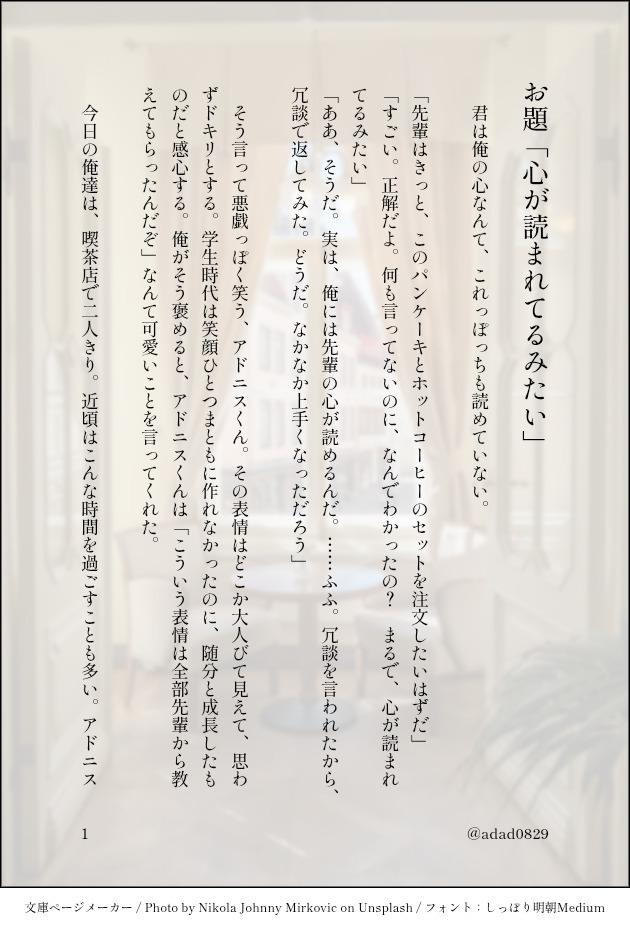 お題「心が読まれてるみたい」
君は俺の心なんて、これっぽっちも読めていない。
「先輩はきっと、このパンケーキとホットコーヒーのセットを注文したいはずだ」
「すごい。正解だよ。何も言ってないのに、なんでわかったの？　まるで、心が読まれ
てるみたい」
「ああ、そうだ。実は、俺には先輩の心が読めるんだ。……ふふ。冗談を言われたから、
冗談で返してみた。どうだ。なかなか上手くなっただろう」
そう言って悪戯っぽく笑う、アドニスくん。その表情はどこか大人びて見えて、思わ
ずドキリとする。学生時代は笑顔ひとつまともに作れなかったのに、随分と成長したも
のだと感心する。俺がそう褒めると、アドニスくんは「こういう表情は全部先輩から教
えてもらったんだぞ」なんて可愛いことを言ってくれた。
今日の俺達は、喫茶店で二人きり。近頃はこんな時間を過ごすことも多い。アドニス
@adad0829
1
文庫ページメーカー / Photo by Nikola Johnny Mirkovic on Unsplash / フォント：しっぽり明朝Medium